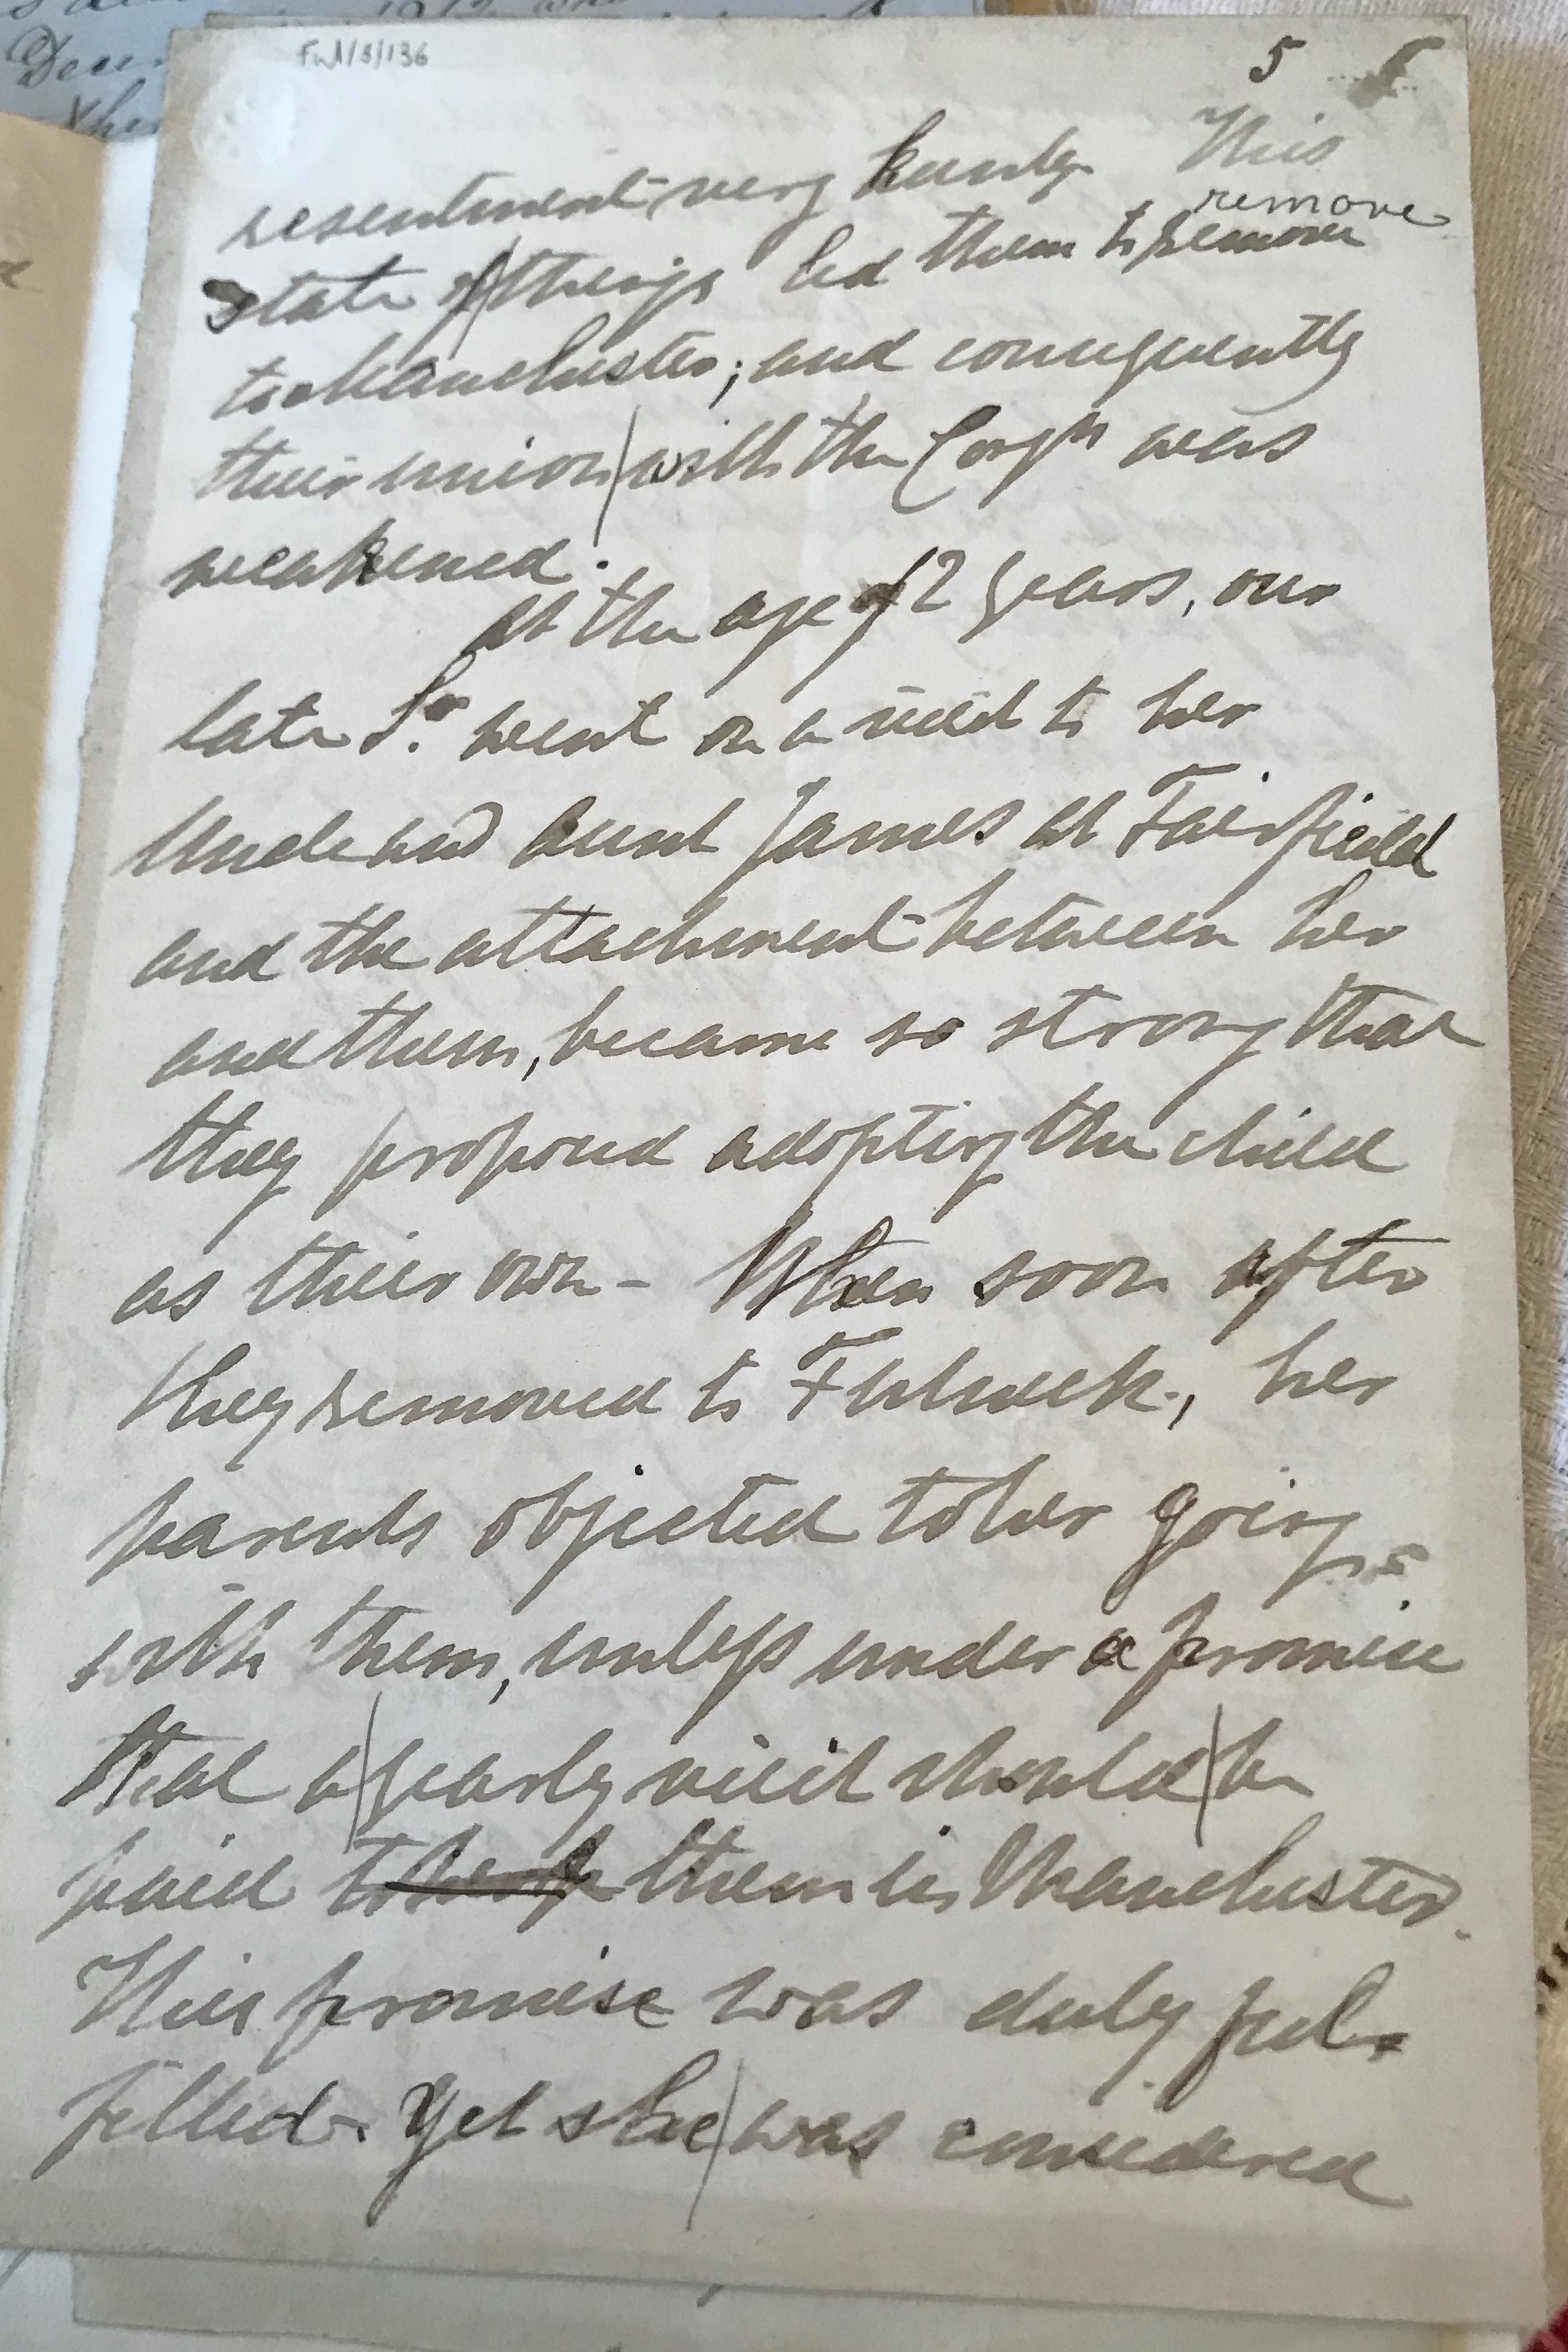 Ful/3/136
5
resentment very keenly. This
remove
state of things led them to remove
to Manchester; and consequently
their union with the Congn was
weakened.
At the age of 12 years, our
late Sr. went on a visit to her
Uncle and Aunt James at Fairfield
and the attachment between her
and them, became so strong that
they proposed adopting the child
as their own - When soon after
they removed to Fulneck, her
parents objected to her going
with them, unless under a promise
that a yearly visit should be
paid to them in Manchester.
This promise was duly ful-
filled. Yet she was considered